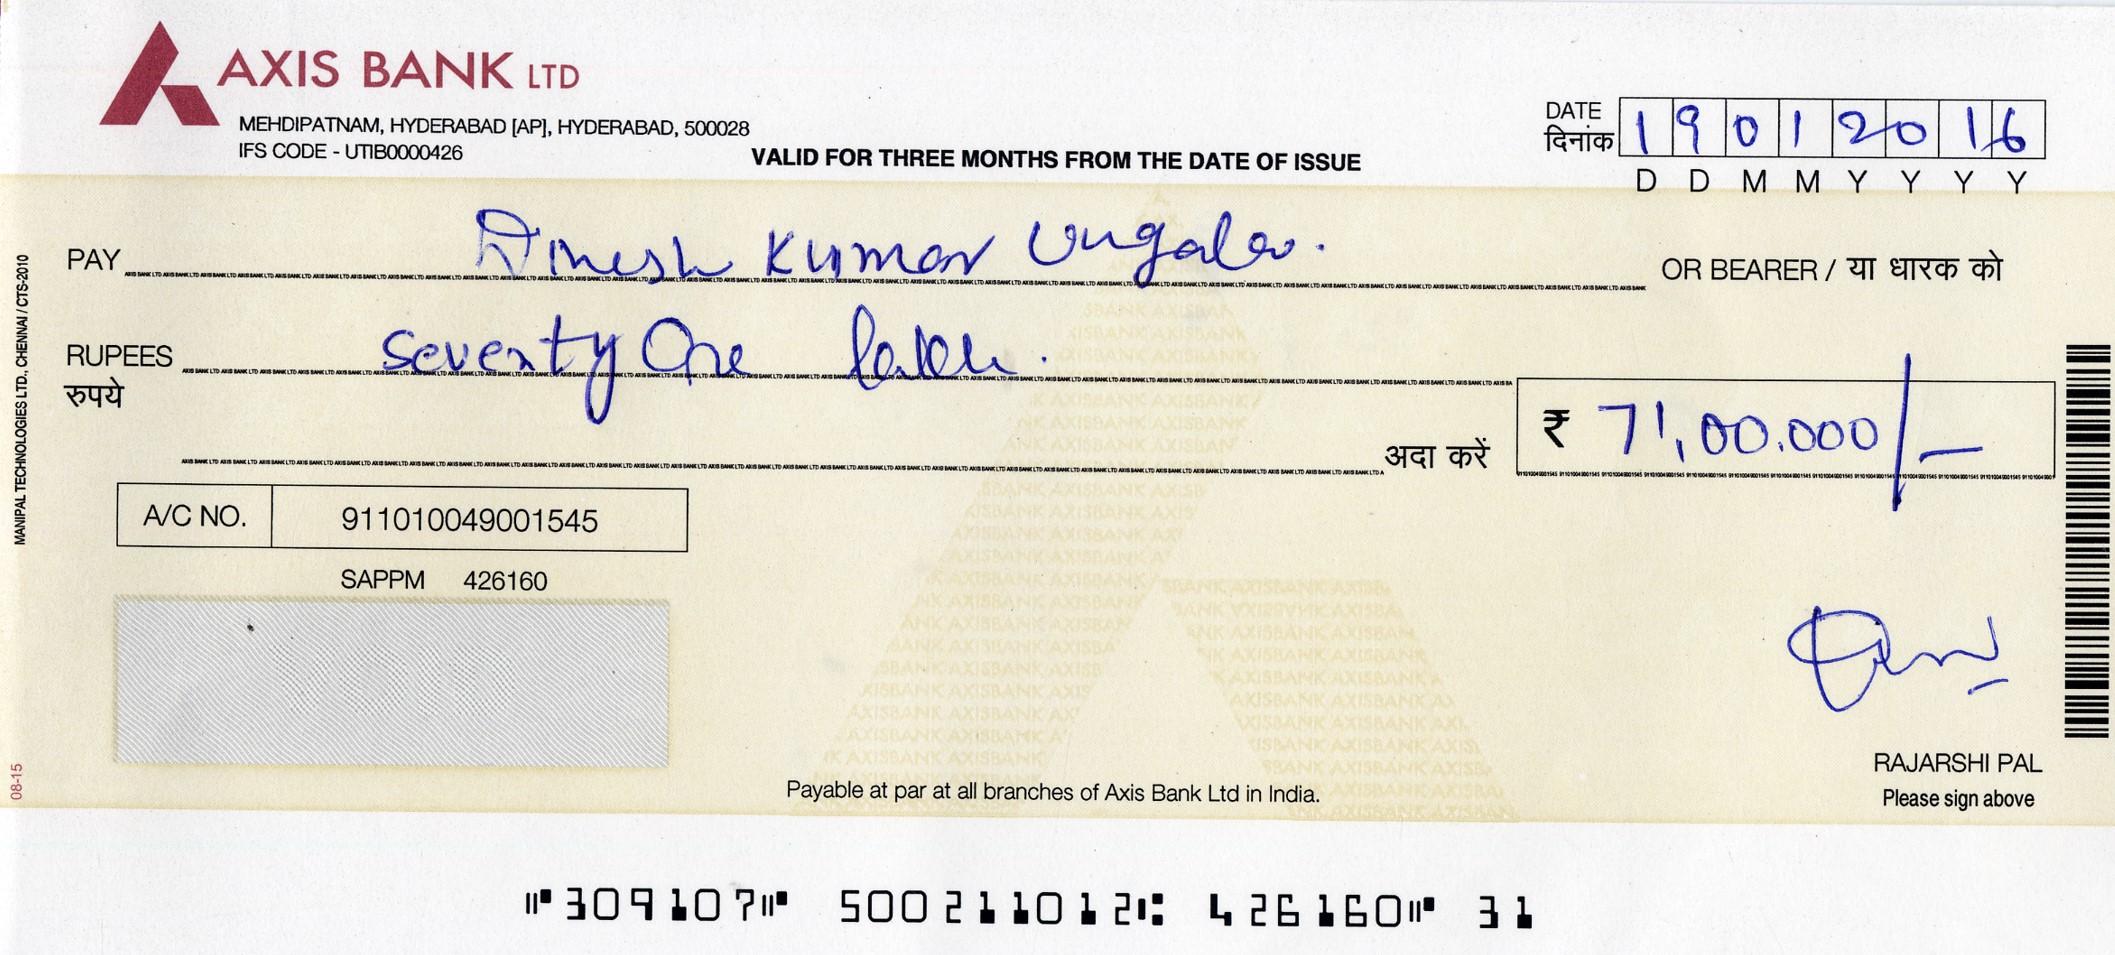 AXIS BANK LTD
MEHDIPATNAM, HYDERABAD [AP], HYDERABAD, 500028
IFS CODE - UTIB0000426
VALID FOR THREE MONTHS FROM THE DATE OF ISSUE
DATE
दिनांक
1 9 0 1 2 0 1 6
D D M M Y Y Y Y
PAY Dinesh Kumar Vugala. OR BEARER / या धारक को
RUPEES Seventy One lakh.
रुपये
अदा करें ₹ 71,00.000/-
A/C NO. 911010049001545
SAPPM 426160
RAJARSHI PAL
Please sign above
Payable at par at all branches of Axis Bank Ltd in India.
⑈309107⑈ 500211012⑆ 426160⑈ 31
MANIPAL TECHNOLOGIES LTD., CHENNAI / CTS-2010
08-15